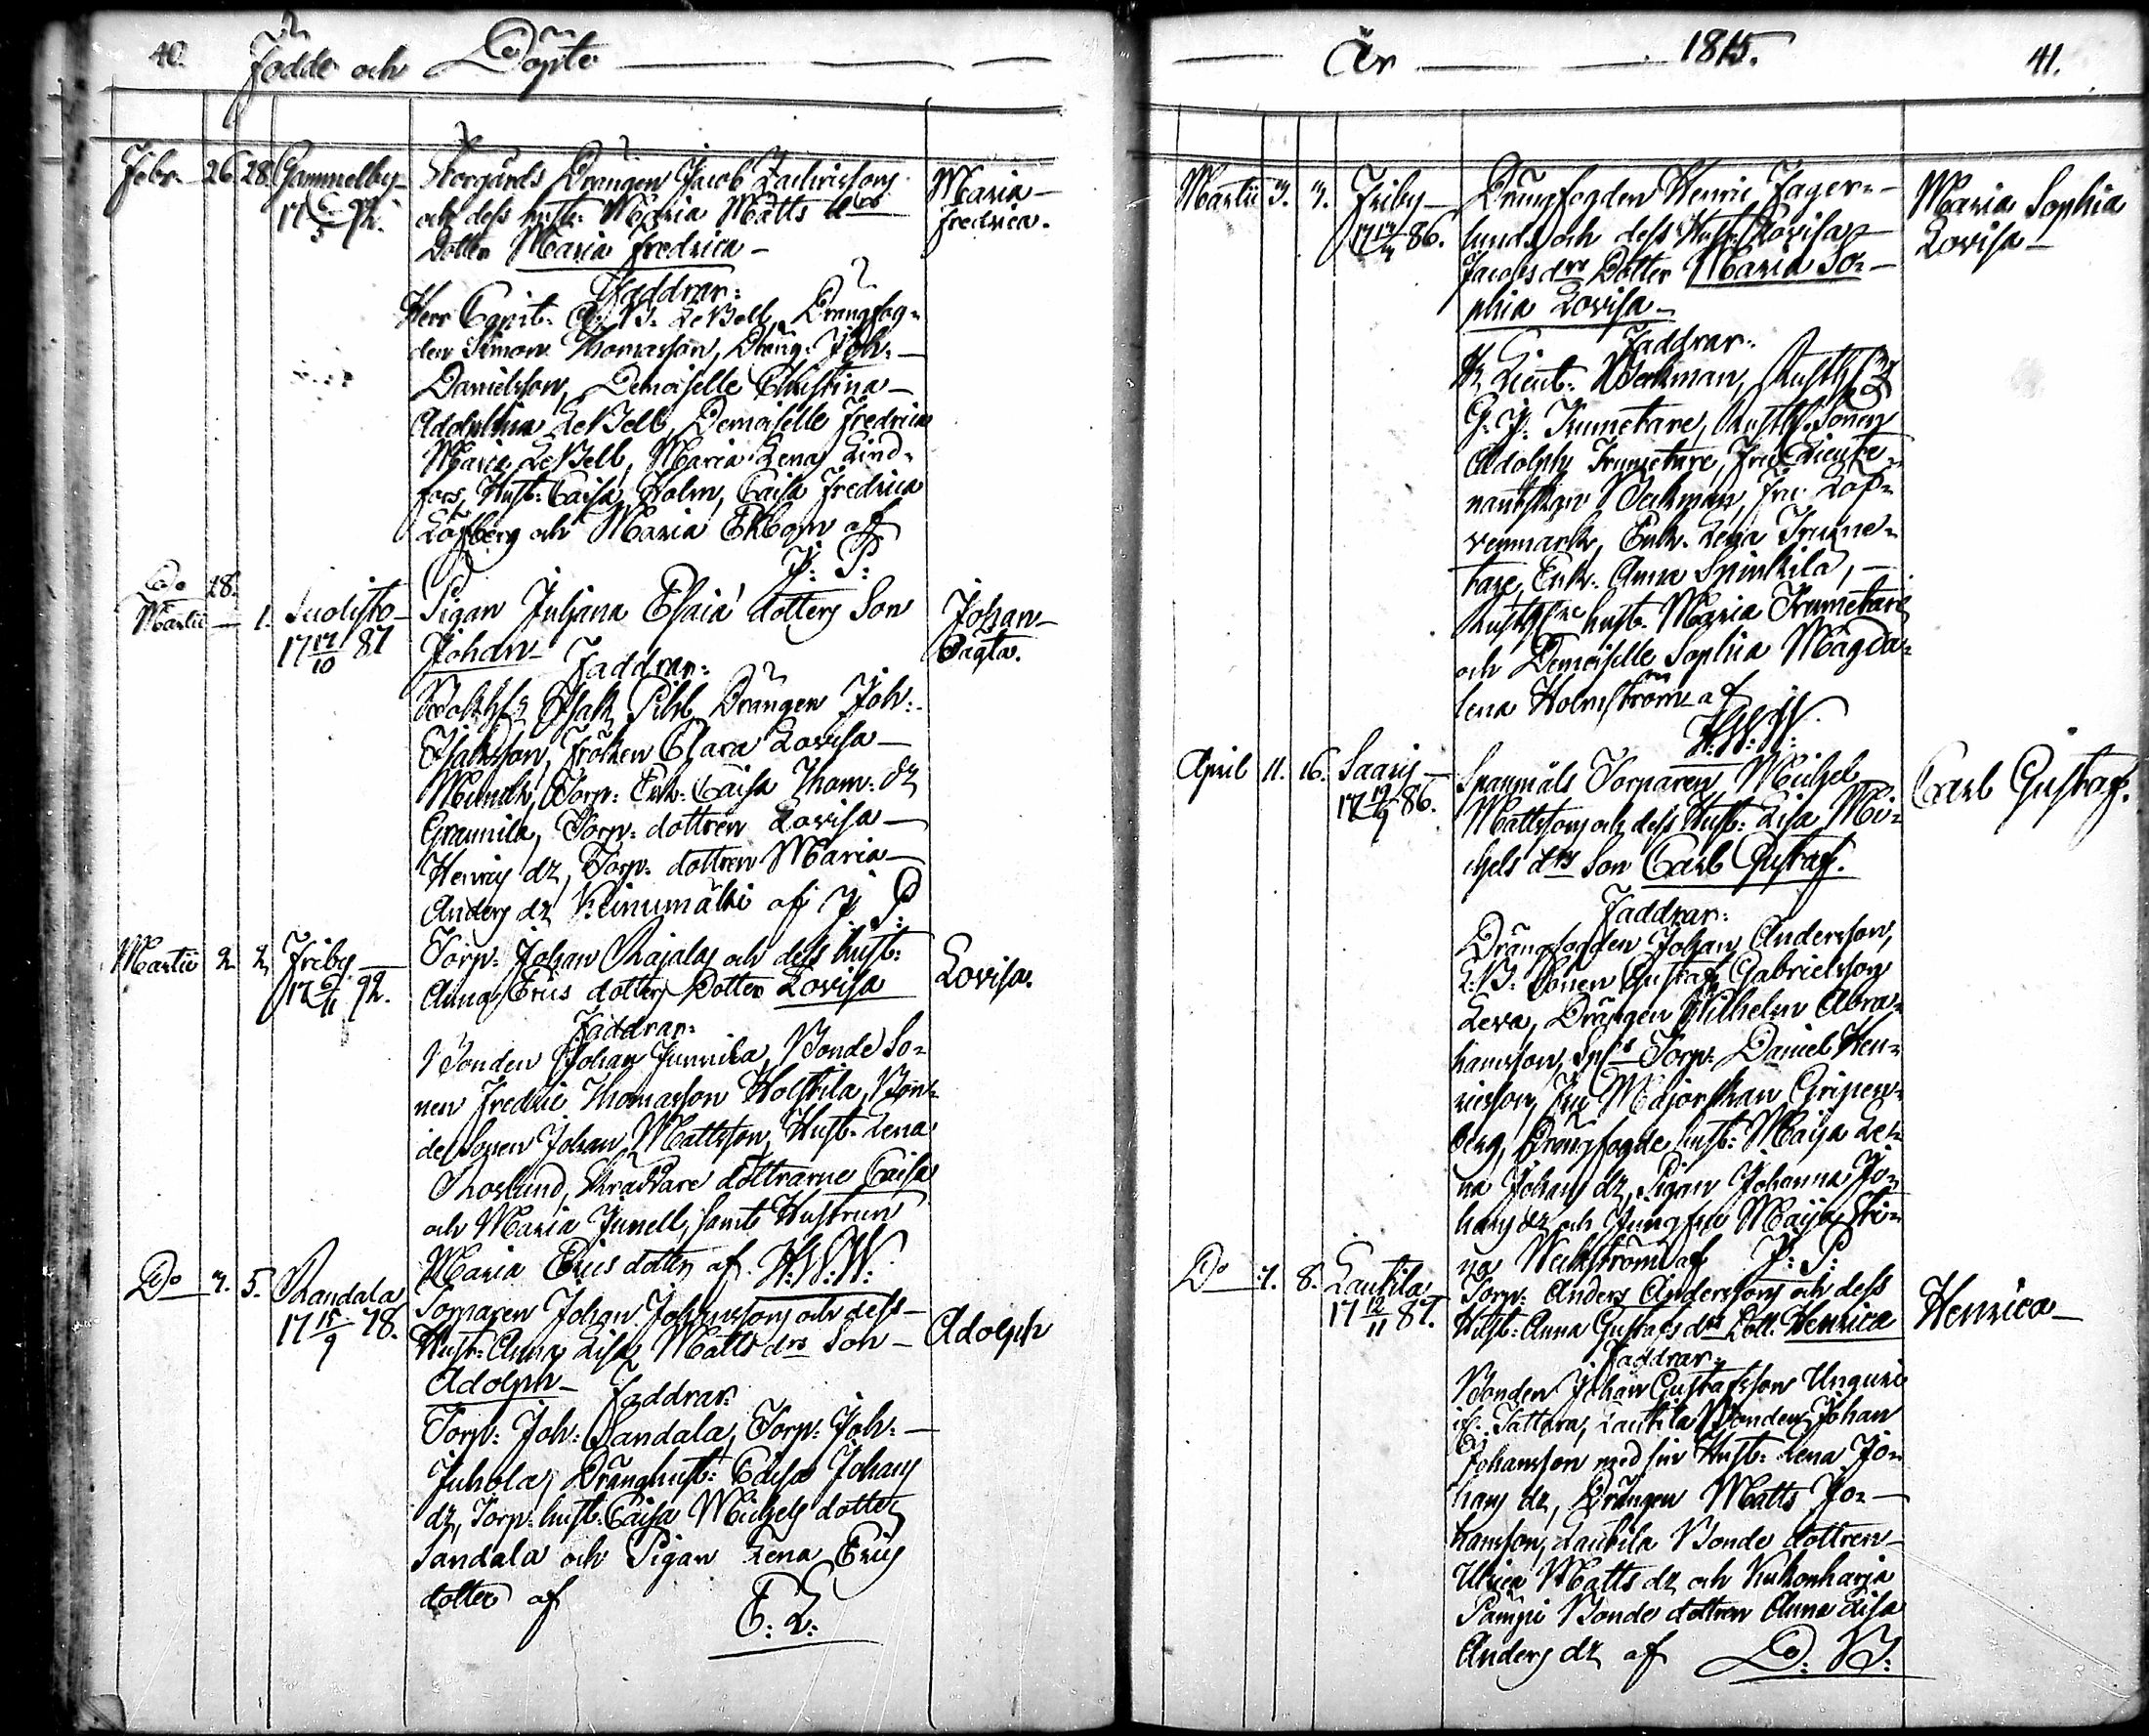 40. Födde och Döpte
Febr. 26 28. Gammelby Storgårds Drängen Jacob Zachrissons Maria
17 92. och dess hust: Maria Matts drs Fredrica.
Dotter Maria Fredrica
Faddrar:
Herr Capit: LeBell, Drängfog=
den Simon Thomasson, Dräng: Joh:
Danielsson, Demoiselle Christina
Adolphina LeBell, Demoiselle Fredrica
Maria LeBell, Maria Lena Lind=
fors, Hust: Caisa Holm, Caisa Fredrica
Löfberg och Maria Ekbom af
J: P:
Do 28.
Martii 1. Suolisto Pigan Juliana Esaiæ dotters Son Johan
17 17/10 87 Johan Faddrar: Oägta.
Isak Pihl, Drängen Joh:
Isaksson, Fröken Clara Lovisa
Munck, Torp: Enk: Caisa Thom: dr
Grannila, Torp: dottren Lovisa
Henrics dr, Torp: dottren Maria
Anders dr Keinumäki af J P
Martii 2 2 Friby Torp: Johan Rajalas och dess hust: Lovisa.
17 6/11 92. Anna Erics dotters Dotter Lovisa
Faddrar:
Bonden Johan Junnila, Bonde So=
nen Fredric Thomasson Holstila, Bon=
de Sonen Johan Mattsson, Hust: Lena
Roslund, Skraddare döttrarne Caisa
och Maria Junell, samt Hustrun
Maria Erics dotter af H: W:
Do 4. 5. Randala Torparen Johan Johanssons och dess
17 15/9 78. Hust: Anna Lisa Matts drs Son Adolph
Adolph Faddrar:
Torp: Joh: Sandala, Torp: Joh:
Juhola, Dränghust: Caisa Johans
dr, Torp: hust: Caisa Michels dotter
Sandala och Pigan Lena Erics
dotter af E: L:
År 1815. 41.
Martii 3. 3. Friby Drängfogden Henric Fager= Maria Sophia
17 86. lunds och dess Hust: Lovisa Lovisa
Jacobs drs Dotter Maria So=
phia Lovisa
Faddrar:
Hr Lieut: Weckman, Rusth:
G. J: Trumetare, Rusth: Sonen
Adolph Trumetare, Fru Lieute=
nantskan Weckman, Fru Lof=
venmark, Enk: Lena Trume=
tare, Enk: Anna Spinkila,
hust: Maria Trumetare
och Demoiselle Sophia Magda=
lena Holmström af
H: W:
April 11. 16. Saaris Spanmåls Torparen Michel Carl Gustaf.
17 19/9 86. Mattssons och dess Hust: Lisa Mi=
chels drs Son Carl Gustaf.
Faddrar:
Drängfogden Johan Andersson,
Sonen Gustaf Gabrielsson
Leva, Drängen Wilhelm Abra=
hamsson, Torp: Daniel Hen=
ricsson, Fru Majorskan Gripen=
berg, Drängfogde hust: Maija Le=
na Johans dr, Pigan Johanna Jo=
hans dr och Jungfru Maija Sti=
na Weckström af J: P:
Do 7. 8. Lautila Torp: Anders Anderssons och dess
17 12/11 87. Hust: Anna Gustafs drs Dott. Henrica Henrica
Faddrar:
Bonden Johan Gustafsson Unguri
if: Tattara, Lautila Bonden Johan
Johansson med sin Hust: Lena Jo=
hans dr, Drängen Matts Jo=
hansson, Lautila Bonde dottren
Ulrica Matts dr och Kukonharja
Pämpi Bonde dottren Anna Lisa
Anders dr af D: B: